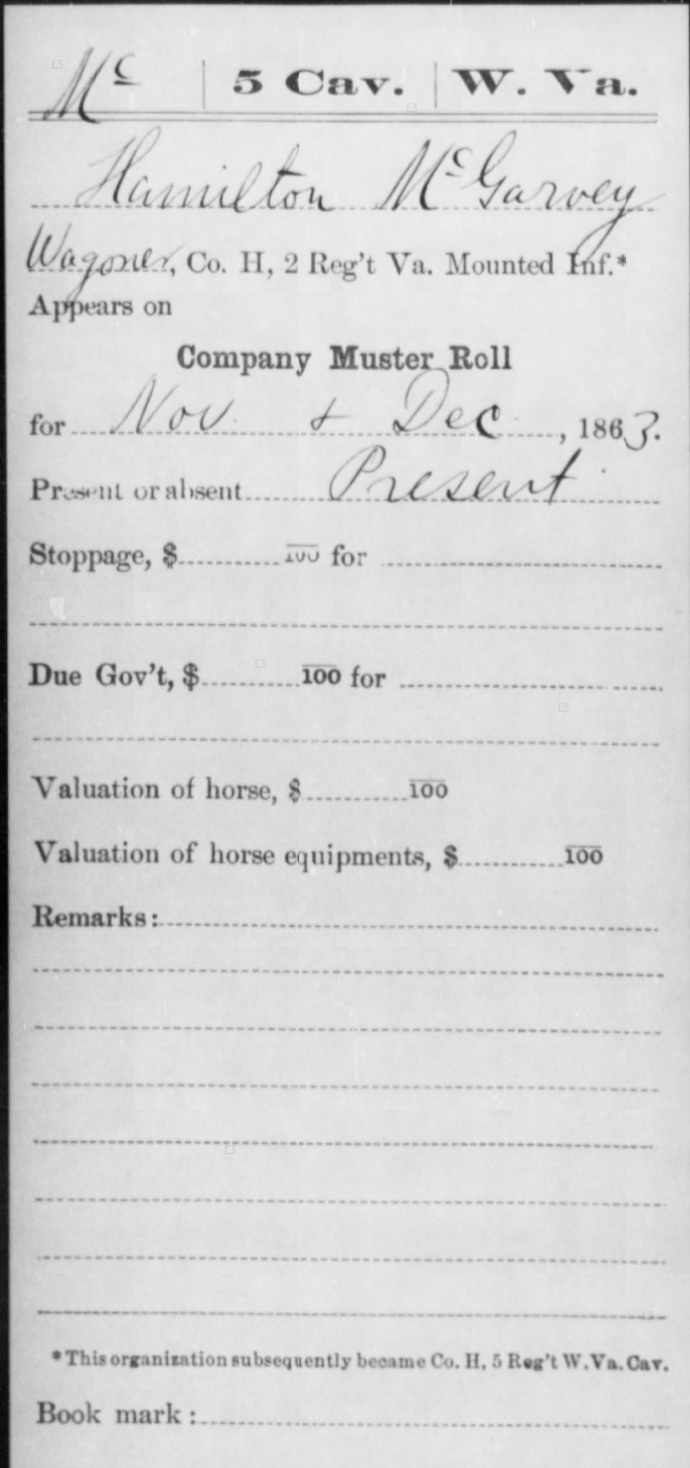 Mc | 5 Cav. | W. Va.
Hamilton McGarvey
Wagoner, Co. H, 2 Reg't Va. Mounted Inf.*
Appears on
Company Muster Roll
for Nov & Dec, 1863.
Present or absent Present
Stoppage, $ 100 for
Due Gov't, $ 100 for
Valuation of horse, $ 100
Valuation of horse equipments, $ 100
Remarks:
*This organization subsequently became Co. H, 5 Reg't W. Va. Cav.
Book mark: